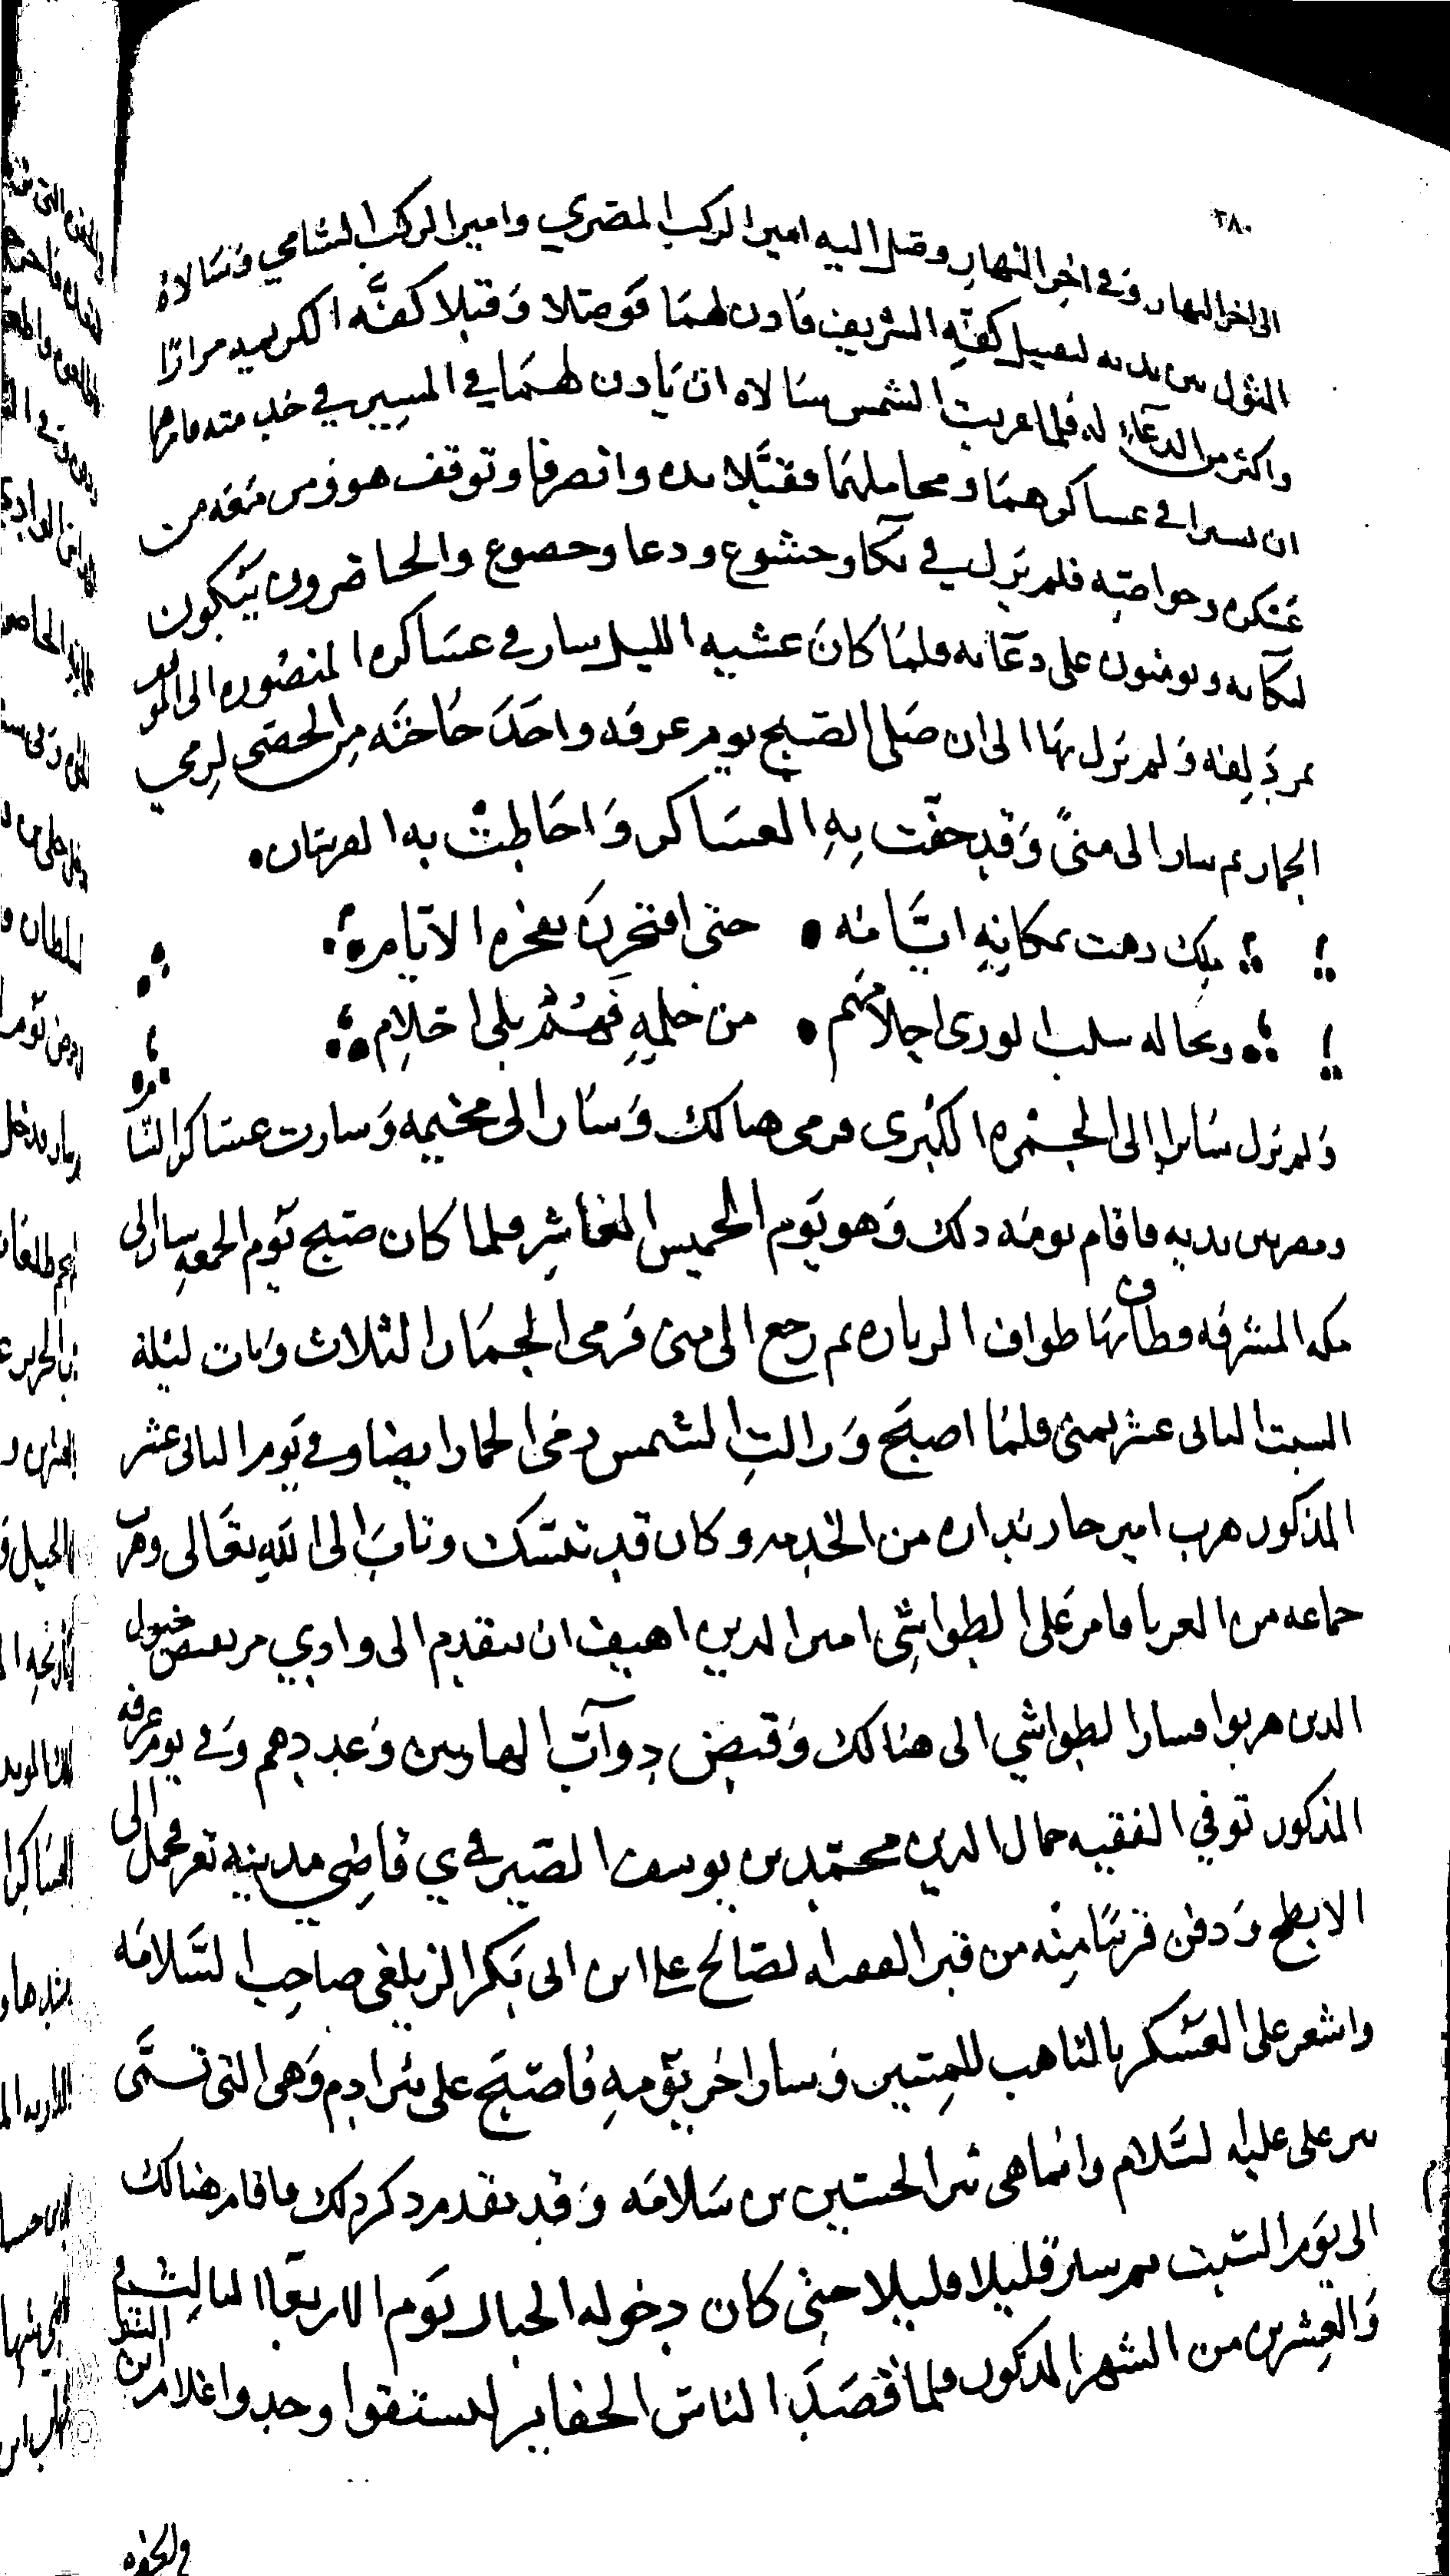 ٣٨٠
الى اخر النهار وفي اخر النهار وصل اليه امير الركب المصري وامير الركب الشامي وسالاه
المثول بين يديه لتقبيل كفّه الشريف فاذن لهما فوصلا وقبلا كفّه الكريمه مرارًا
واكثر من الدعاء له فلما غربت الشمس سالاه ان ياذن لهما في المسير في خدمته فامرهما
ان يسيرا في عساكرهما ومحاملهما فقبّلا يده وانصرفا وتوقف هو ومن معه من
عسكره وخواصه فلم يزل في بكا وخشوع ودعا وخضوع والحاضرون يبكون
لبكايه ويومنون على دعايه فلما كان عشيه الليل سار في عساكره المنصوره الى
بمزدلفه ولم يزل بها الى ان صلى الصبح يوم عرفه واخذ حاجته من الحصى لرمي
الجمار ثم سار الى منىً وقد حفّت به العساكر واحاطت به الفرسان
ملك زهت بمكانه ايّامه حتى افتخرن بفخره الايام
وبحاله سلب الورى اجلامهم من حلمه فهم بلى احلام
ولم يزل سايرا الى الجمره الكبرى فرمى هنالك وسار الى مخيمه وسارت عساكر الشا
ومصر بين يديه فاقام يومه ذلك وهو يوم الخميس العاشر فلما كان صبح يوم الجمعه سار الى
مكه المشرفه وطاف بها طواف الزياره ثم رجع الى منى فرمى الجمار الثلاث وبات ليلة
السبت الثاني عشر بمنى فلما اصبح وزالت الشمس رمى الجمار ايضا وفي يوم الثاني عشر
المذكور هرب امير جاندارنداره من الخدمه وكان قد تنسّك وتاب الى الله تعالى وهرب
جماعه من الغربا فامر على الطواشي امين الدين اهيف ان يتقدم الى وادي مر بقبض خيول
الذين هربوا فسار الطواشي الى هنالك وقبض دوآبّ الهاربين وعددهم وفي يوم عرفه
المذكور توفي الفقيه جمال الدين محمّد بن يوسف الصيرفي قاضي مدينه تعز فحمل الى
الابطح ودفن قريبًا منه من قبر الفقيه الصالح علي ابن ابي بكر الزيلعي صاحب السّلامه
واشعر على العسكر بالتاهب للمسير وسار اخر يومه فاصبح على بئر ادم وهي التي تسمّى
بير على عليه السّلام وانما هي بير الحسين بن سلامه وقد تقدم ذكر ذلك فاقام هنالك
الى يوم السبت ثم سار قليلا قليلا حتى كان دخوله الجبال يوم الاربعا الثالث
والعشرين من الشهر المذكور فلما قصد الناس الحفاير ليستقوا وجدوا غلام ابن